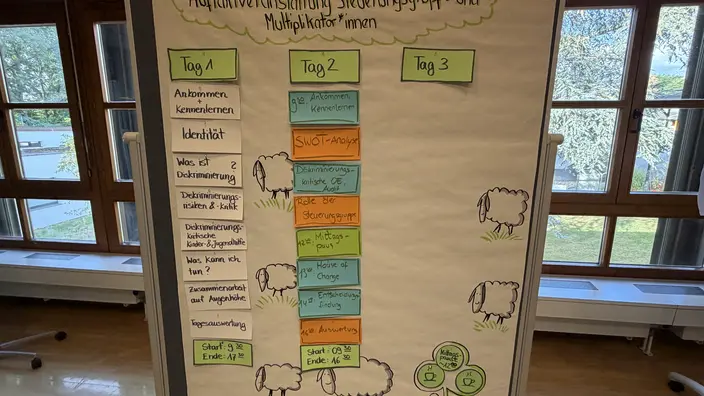 Auftaktveranstaltung Steuerungsgruppe und
Multiplikator*innen
Tag 1
Ankommen
+
Kennenlernen
Identität
Was ist
Diskriminierung?
Diskriminierungs-
risiken & -kritik
Diskriminierungs-
kritische
Kinder- & Jugendhilfe
Was kann ich
tun?
Zusammenarbeit
auf Augenhöhe
Tagesauswertung
Start: 9 30
Ende: 17 30
Tag 2
Ankommen
Kennenlernen
SWOT-Analyse
Diskriminierungs-
kritische OE,
Rolle der
Steuerungsgruppe
Mittags-
pause
House of
Change
Entscheidungs-
findung
Auswertung
Start: 09 30
Ende: 16 30
Tag 3